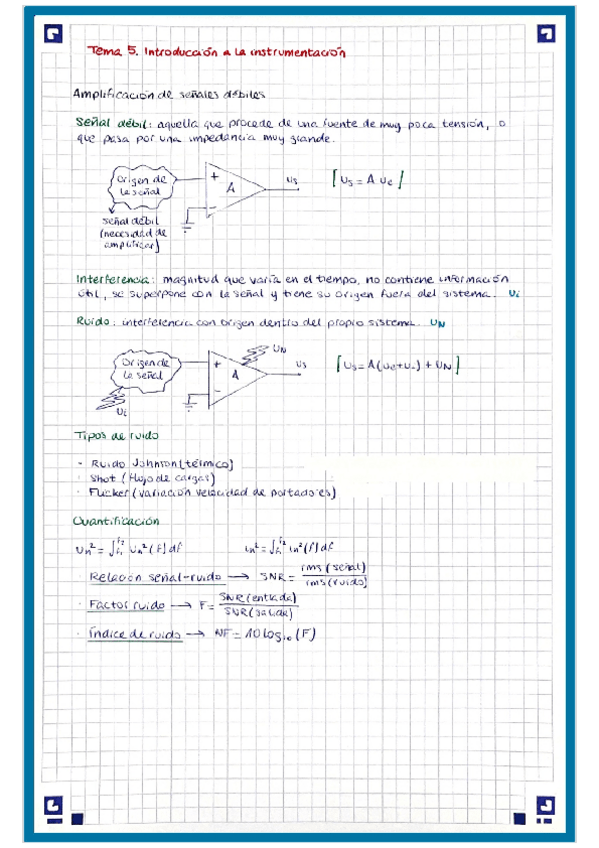 Tema 5. Introducción a la instrumentación
Amplificación de señales débiles
Señal débil: aquella que procede de una fuente de muy poca tensión, o
que pasa por una impedancia muy grande.
Origen de
la señal
+
A
-
Us
[Us = A Ue]
señal débil
(necesidad de
amplificar)
Interferencia: magnitud que varía en el tiempo, no contiene información
útil, se superpone con la señal y tiene su origen fuera del sistema. Ui
Ruido: interferencia con origen dentro del propio sistema. UN
Origen de
la señal
Ui
+
A
-
UN
Us
[Us = A(Ue+Ui) + UN]
Tipos de ruido
· Ruido Johnson (térmico)
· Shot (flujo de cargas)
· Flicker (variación velocidad de portadores)
Cuantificación
Un² = ∫f1^f2 Un²(f) df    in² = ∫f1^f2 in²(f) df
· Relación señal-ruido → SNR = rms (señal) / rms (ruido)
· Factor ruido → F = SNR (entrada) / SNR (salida)
· Índice de ruido → NF = 10 log10 (F)